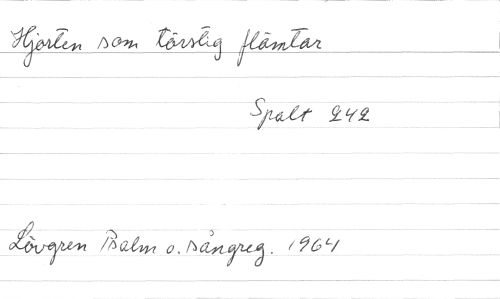 Hjorten som törstig flämtar
Spalt 242
Lövgren Psalm o. sångreg. 1964